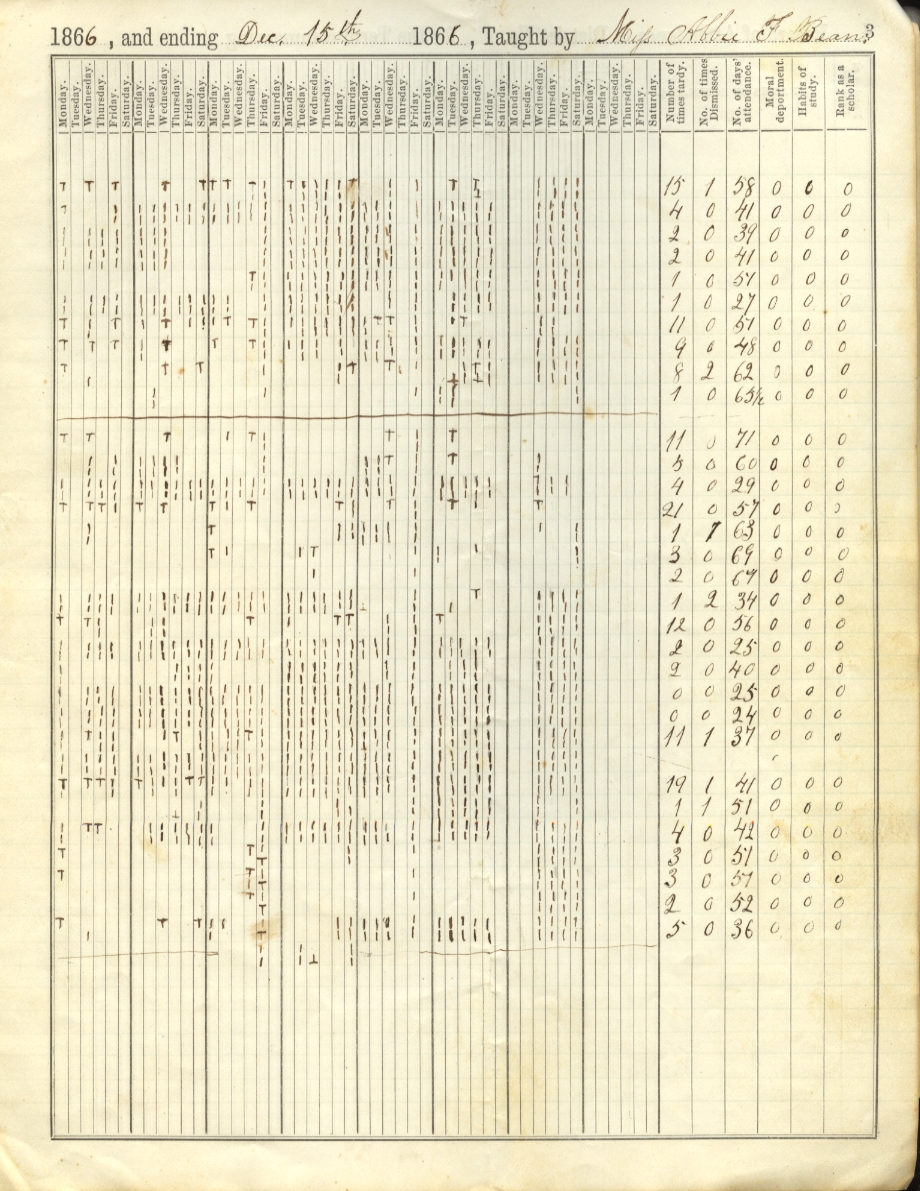 1866 , and ending Dec. 15th 1866 , Taught by Miss Abbie F. Bean. 3
Monday. Tuesday. Wednesday. Thursday. Friday. Saturday. Monday. Tuesday. Wednesday. Thursday. Friday. Saturday. Monday. Tuesday. Wednesday. Thursday. Friday. Saturday. Monday. Tuesday. Wednesday. Thursday. Friday. Saturday. Monday. Tuesday. Wednesday. Thursday. Friday. Saturday. Monday. Tuesday. Wednesday. Thursday. Friday. Saturday. Monday. Tuesday. Wednesday. Thursday. Friday. Saturday. Monday. Tuesday. Wednesday. Thursday. Friday. Saturday. Number of times tardy. No. of times Dismissed. No. of days' attendance. Moral deportment. Habits of study. Rank as a scholar.
15 1 58 0 0 0
4 0 41 0 0 0
2 0 39 0 0 0
2 0 41 0 0 0
1 0 51 0 0 0
1 0 27 0 0 0
11 0 51 0 0 0
9 0 48 0 0 0
8 2 62 0 0 0
1 0 65½ 0 0 0
11 0 71 0 0 0
5 0 60 0 0 0
4 0 29 0 0 0
21 0 57 0 0 0
1 7 63 0 0 0
3 0 69 0 0 0
2 0 67 0 0 0
1 2 34 0 0 0
12 0 56 0 0 0
2 0 25 0 0 0
2 0 40 0 0 0
0 0 25 0 0 0
0 0 24 0 0 0
11 1 37 0 0 0
19 1 41 0 0 0
1 1 51 0 0 0
4 0 42 0 0 0
3 0 51 0 0 0
3 0 51 0 0 0
2 0 52 0 0 0
5 0 36 0 0 0